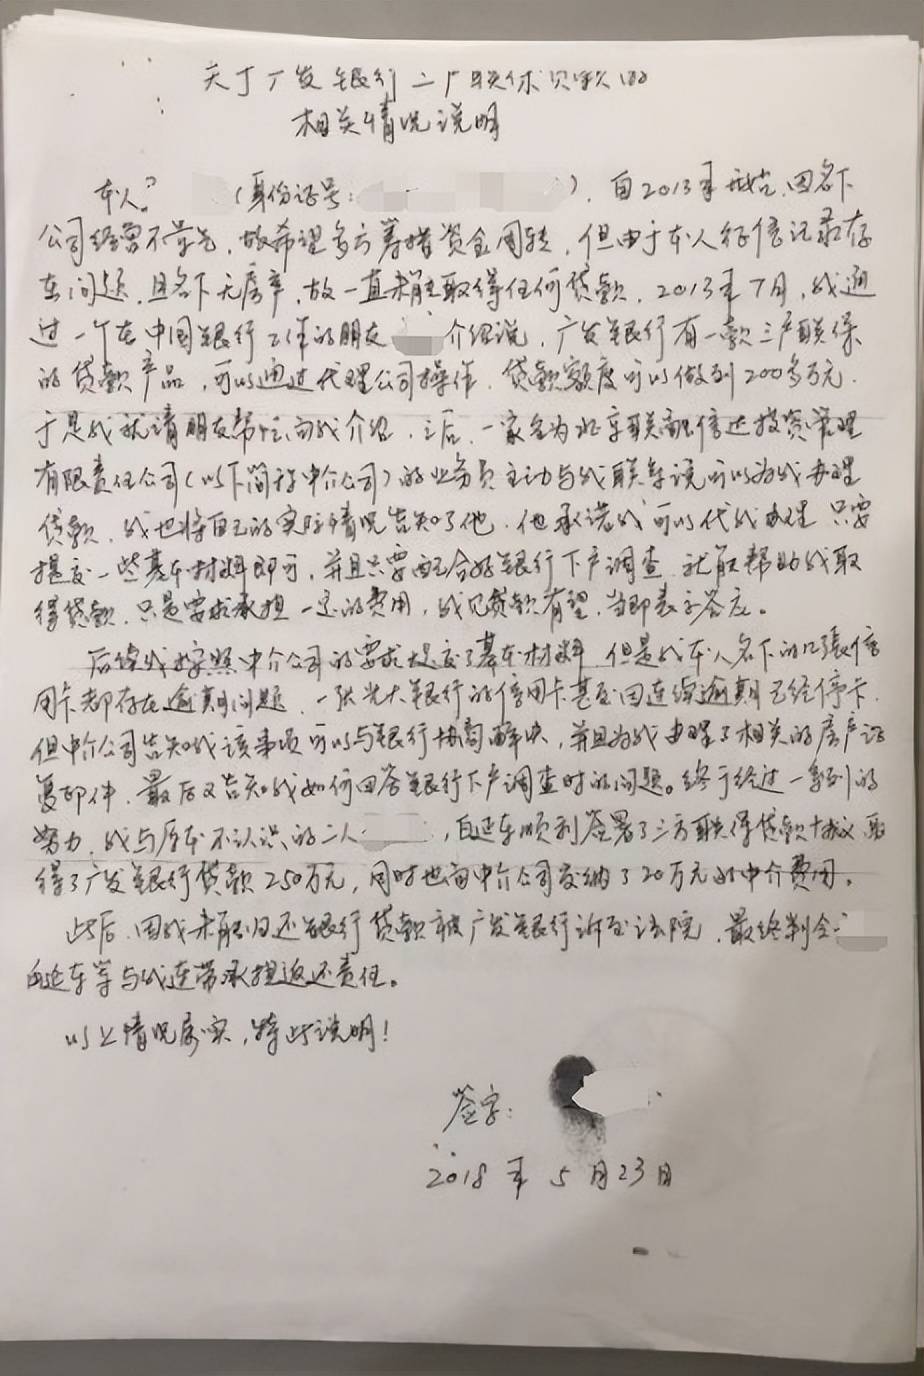 关于广发银行三户联保贷款的
相关情况说明
本人 (身份证号: ), 自2013年开始,因名下
公司经营不景气,故希望多方筹措资金周转,但由于本人征信记录存
在问题,且名下无房产,故一直未能取得任何贷款,2013年7月,我通
过一个在中国银行工作的朋友 介绍说,广发银行有一款三户联保
的贷款产品,可以通过代理公司操作,贷款额度可以做到200多万元.
于是我就请朋友帮忙向我介绍,之后,一家名为北京联融信达投资管理
有限责任公司(以下简称中介公司)的业务员主动与我联系说可以为我办理
贷款,我也将自己的实际情况告知了他,他承诺我可以代我办理 只要
提交一些基本材料即可,并且只要配合好银行下户调查,就能帮助我取
得贷款,只是要求承担一定的费用,我见贷款有望,当即表示答应。
后续我按照中介公司的要求提交了基本材料 但是我本人名下的几张信
用卡都存在逾期问题,一张光大银行的信用卡甚至因连续逾期已经停卡,
但中介公司告知我该事项可以与银行协商解决,并且为我办理了相关的房产证
复印件,最后又告知我如何回答银行下户调查时的问题。终于经过一系列的
努力,我与原本不认识的二人 ,白延车顺利签署了三方联保贷款协议 取
得了广发银行贷款250万元,同时也向中介公司交纳了20万元的中介费用。
此后,因我未能归还银行贷款被广发银行诉至法院,最终判令
白延车等与我连带承担返还责任。
以上情况属实,特此说明!
签字:
2018年5月23日